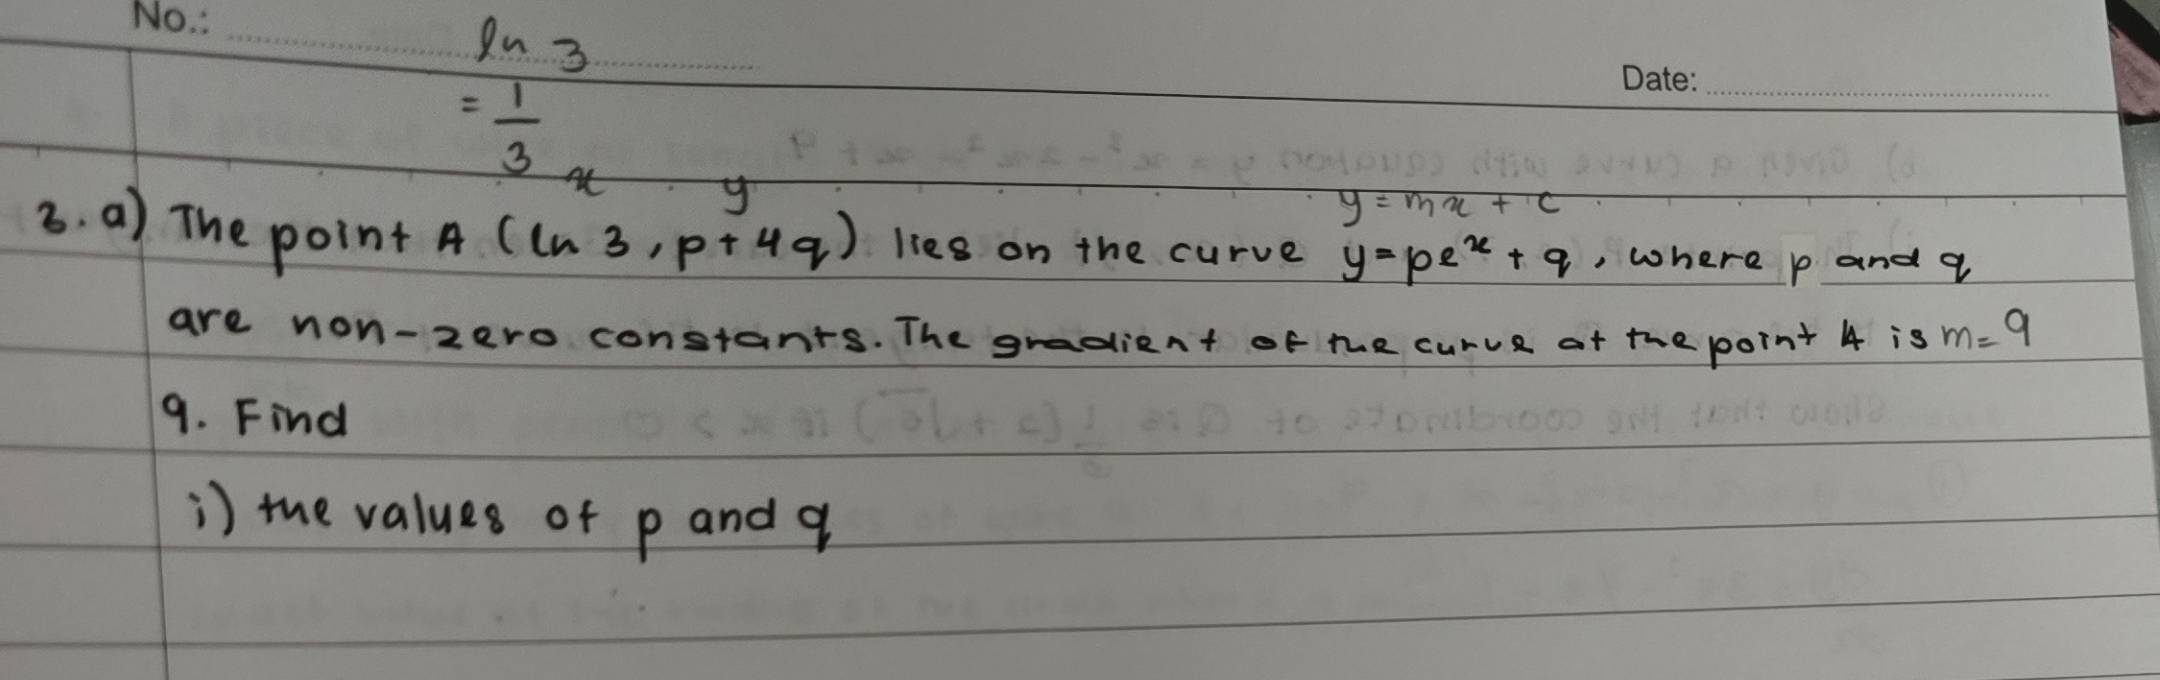 No.:
ln 3
Date:
= 1/3
x y
y = mx + c
3. a) The point A (ln 3, p + 4q) lies on the curve y = pe^x + q, where p and q
are non-zero constants. The gradient of the curve at the point A is m = 9
9. Find
i) the values of p and q